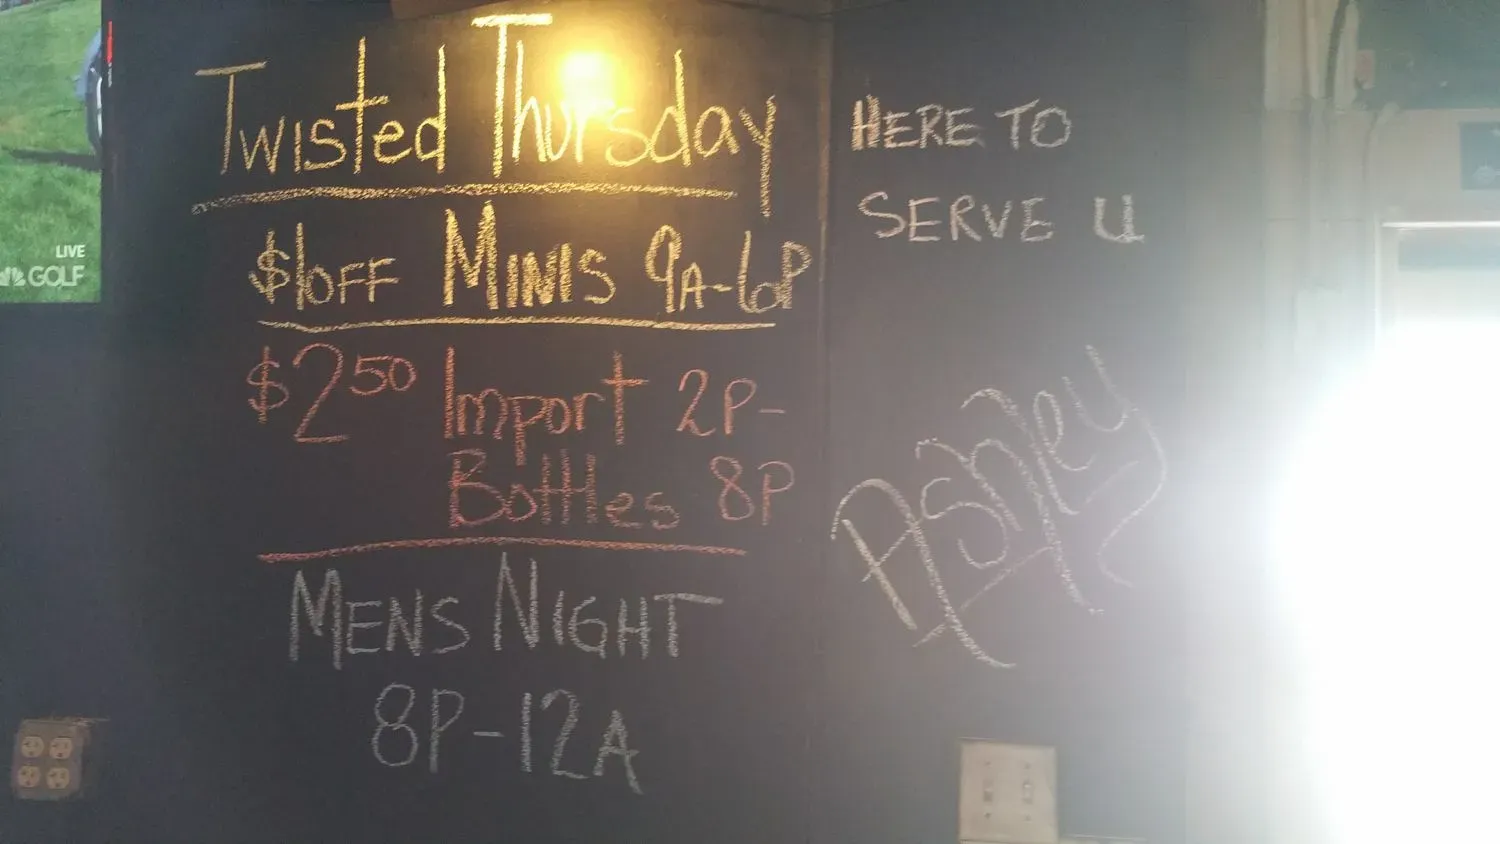 Twisted Thursday
$1 OFF MINIS 9A-6P
$2.50 Import 2P-
Bottles 8P
MENS NIGHT
8P-12A
HERE TO
SERVE U
Ashley
LIVE
GOLF